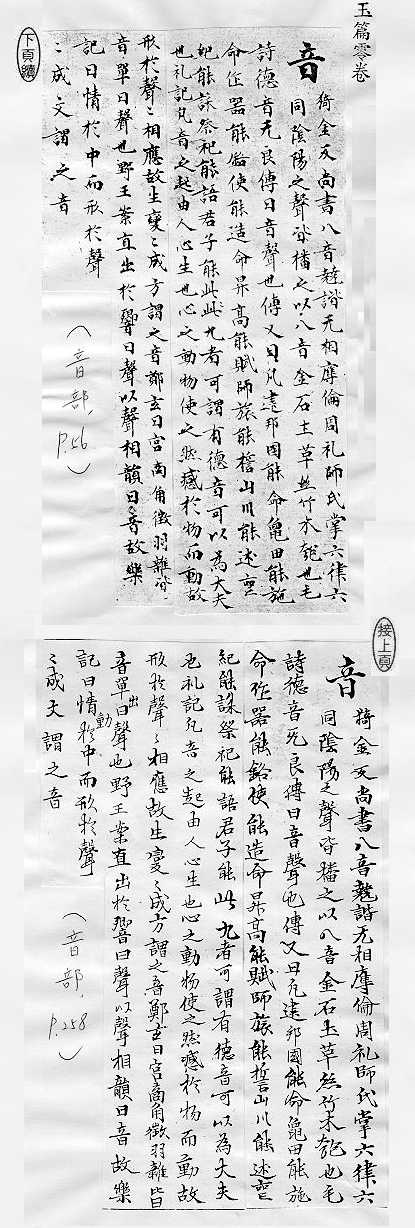 玉篇零卷
音
猗金反尚書八音尅諧无相奪倫周礼師氏掌六律六
同陰陽之聲皆播之以八音金石土草絲竹木匏也毛
詩德音无良傳曰音聲也傳又曰凡建邦國能命龜田能施
命作器能銘使能造命昇高能賦師旅能誓山川能述喪
紀能誄祭祀能語君子能此此九者可謂有德音可以為大夫
也礼記凡音之起由人心生也心之動物使之然感於物而動故
形於聲〻相應故生變〻成方謂之音鄭玄曰宮商角徵羽雜皆
音單曰聲也野王案直出於響曰聲以聲相韻曰音故樂
記曰情於中而形於聲
〻成文謂之音
(音部, P.56)
下頁續
接上頁
音
猗金反尚書八音尅諧无相奪倫周礼師氏掌六律六
同陰陽之聲皆播之以八音金石土草絲竹木匏也毛
詩德音无良傳曰音聲也傳又曰凡建邦國能命龜田能施
命作器能銘使能造命昇高能賦師旅能誓山川能述喪
紀能誄祭祀能語君子能此九者可謂有德音可以為大夫
也礼記凡音之起由人心生也心之動物使之然感於物而動故
形於聲〻相應故生變〻成方謂之音鄭玄曰宮商角徵羽雜皆
音單出曰聲也野王案直出於響曰聲以聲相韻曰音故樂
記曰情動於中而形於聲
〻成文謂之音
(音部, P.258)